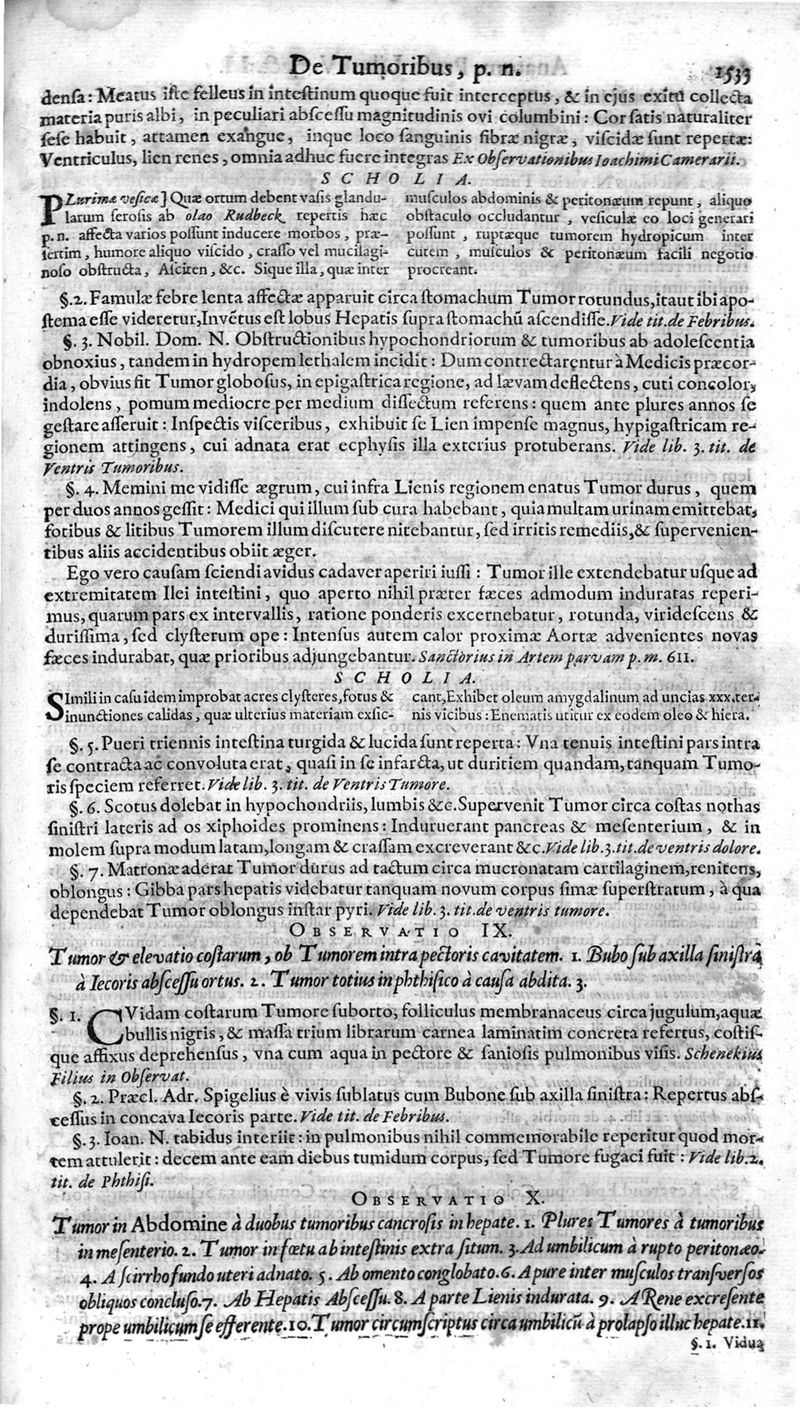 De Tumoribus, p. n. 1533
denſa: Meatus iſte felleus in inteſtinum quoque fuit interceptus, & in ejus exitu collecta
materia puris albi, in peculiari abſceſſu magnitudinis ovi columbini: Cor ſatis naturaliter
ſeſe habuit, attamen exangue, inque loco ſanguinis fibræ nigræ, viſcidæ ſunt repertæ:
Ventriculus, lien renes, omnia adhuc fuere integras Ex Obſervationibus Ioachimi Camerarii.
SCHOLIA.
PLurimæ veſicæ] Quæ ortum debent vaſis glandu-
larum ſeroſis ab olao Rudbeck repertis hæc
p. n. affecta varios poſſunt inducere morbos, præ-
ſertim, humore aliquo viſcido, craſſo vel mucilagi-
noſo obſtructa, Aſciten, &c. Sique illa, quæ inter
muſculos abdominis & peritonæum repunt, aliquo
obſtaculo occludantur, veſiculæ eo loci generari
poſſunt, ruptæque tumorem hydropicum inter
cutem, muſculos & peritonæum facili negotio
procreant.
§. 2. Famulæ febre lenta affectæ apparuit circa ſtomachum Tumor rotundus, itaut ibi apo-
ſtema eſſe videretur, Invētus eſt lobus Hepatis ſupra ſtomachū aſcendiſſe. Vide tit. de Febribus.
§. 3. Nobil. Dom. N. Obſtructionibus hypochondriorum & tumoribus ab adoleſcentia
obnoxius, tandem in hydropem lethalem incidit: Dum contrectarentur à Medicis præcor-
dia, obvius fit Tumor globoſus, in epigaſtrica regione, ad lævam deflectens, cuti concolor,
indolens, pomum mediocre per medium diſſectum referens: quem ante plures annos ſe
geſtare aſſeruit: Inſpectis viſceribus, exhibuit ſe Lien impenſe magnus, hypigaſtricam re-
gionem attingens, cui adnata erat ecphyſis illa exterius protuberans. Vide lib. 3. tit. de
Ventris Tumoribus.
§. 4. Memini me vidiſſe ægrum, cui infra Lienis regionem enatus Tumor durus, quem
per duos annos geſſit: Medici qui illum ſub cura habebant, quia multam urinam emittebat,
fotibus & litibus Tumorem illum diſcutere nitebantur, ſed irritis remediis, & ſupervenien-
tibus aliis accidentibus obiit æger.
Ego vero cauſam ſciendi avidus cadaver aperiri iuſſi: Tumor ille extendebatur uſque ad
extremitatem Ilei inteſtini, quo aperto nihil præter fæces admodum induratas reperi-
mus, quarum pars ex intervallis, ratione ponderis excernebatur, rotunda, virideſcens &
duriſſima, ſed clyſterum ope: Intenſus autem calor proximæ Aortæ advenientes novas
fæces indurabat, quæ prioribus adjungebantur. Sanctorius in Artem parvam p. m. 611.
SCHOLIA.
SImili in caſu idem improbat acres clyſteres, fotus &
inunctiones calidas, quæ ulterius materiam exſic-
cant, Exhibet oleum amygdalinum ad uncias xxx. ter-
nis vicibus: Enematis utitur ex eodem oleo & hiera.
§. 5. Pueri triennis inteſtina turgida & lucida ſunt reperta: Vna tenuis inteſtini pars intra
ſe contracta ac convoluta erat, quaſi in ſe infarcta, ut duritiem quandam, tanquam Tumo-
ris ſpeciem referret. Vide lib. 3. tit. de Ventris Tumore.
§. 6. Scotus dolebat in hypochondriis, lumbis &c. Supervenit Tumor circa coſtas nothas
ſiniſtri lateris ad os xiphoides prominens: Induruerant pancreas & meſenterium, & in
molem ſupra modum latam, longam & craſſam excreverant &c. Vide lib. 3. tit. de ventris dolore.
§. 7. Matronæ aderat Tumor durus ad tactum circa mucronatam cartilaginem, renitens,
oblongus: Gibba pars hepatis videbatur tanquam novum corpus ſimæ ſuperſtratum, à qua
dependebat Tumor oblongus inſtar pyri. Vide lib. 3. tit. de ventris tumore.
OBSERVATIO IX.
Tumor & elevatio coſtarum, ob Tumorem intra pectoris cavitatem. 1. Bubo ſub axilla ſiniſtra
à Iecoris abſceſſu ortus. 2. Tumor totius in phthiſico à cauſa abdita. 3.
§. 1. CVidam coſtarum Tumore ſuborto, folliculus membranaceus circa jugulum, aquæ
bullis nigris, & maſſa trium librarum carnea laminatim concreta refertus, coſtiſ-
que affixus deprehenſus, vna cum aqua in pectore & ſanioſis pulmonibus viſis. Schenekius
Filius in Obſervat.
§. 2. Præcl. Adr. Spigelius è vivis ſublatus cum Bubone ſub axilla ſiniſtra: Repertus abſ-
ceſſus in concava Iecoris parte. Vide tit. de Febribus.
§. 3. Ioan. N. tabidus interiit: in pulmonibus nihil commemorabile reperitur quod mor-
tem attulerit: decem ante eam diebus tumidum corpus, ſed Tumore fugaci fuit: Vide lib. 2.
tit. de Phthiſi.
OBSERVATIO X.
Tumor in Abdomine à duobus tumoribus cancroſis in hepate. 1. Plures Tumores à tumoribus
in meſenterio. 2. Tumor in fœtu ab inteſtinis extra ſitum. 3. Ad umbilicum à rupto peritonæo.
4. A ſcirrho fundo uteri adnato. 5. Ab omento conglobato. 6. A pure inter muſculos tranſverſos
obliquos concluſo. 7. Ab Hepatis Abſceſſu. 8. A parte Lienis indurata. 9. A Rene excreſente
prope umbilicum ſe efferente. 10. Tumor circumſcriptus circa umbilicū à prolapſo illuc hepate. 11.
§. 1. Viduæ